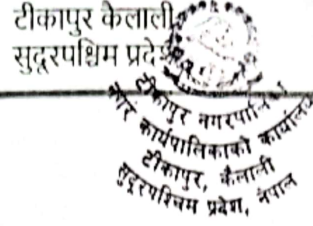 टीकापुर कैलाली
सुदूरपश्चिम प्रदेश
टीकापुर नगरपालिका
नगर कार्यपालिकाको कार्यालय
टीकापुर, कैलाली
सुदूरपश्चिम प्रदेश, नेपाल